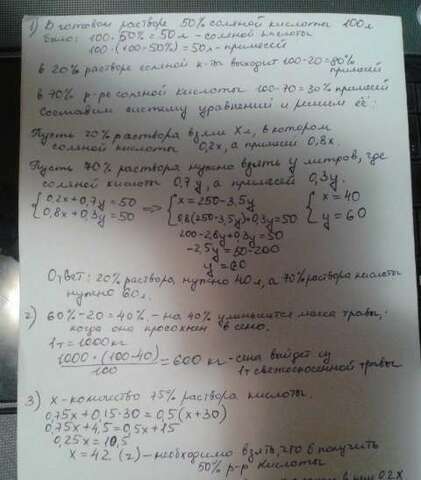 1) В готовом растворе 50% соляной кислоты 100 л
Было: 100 · 50% = 50 л - соляной кислоты
100 · (100-50%) = 50 л - примесей
в 20% растворе соляной к-ты выходит 100-20 = 80%
примесей
в 70% р-ре соляной кислоты 100-70 = 30% примесей
Составим систему уравнений и решим её:
Пусть 20% раствора взяли x л, в котором
соляной кислоты 0,2x, а примеси 0,8x.
Пусть 70% раствора нужно взять y литров, где
соляной кислоты 0,7y, а примесей 0,3y.
{0,2x+0,7y=50 => {x=250-3,5y {x=40
{0,8x+0,3y=50 {0,8(250-3,5y)+0,3y=50 {y=60
200-2,8y+0,3y=50
-2,5y=50-200
y=60
Ответ: 20% раствора нужно 40 л, а 70% раствора кислоты
нужно 60 л.
2) 60%-20=40% - на 40% уменьшится масса травы,
когда она просохнет в сено.
1т=1000кг
1000·(100-40)/100 = 600 кг - сена выйдет из
1т свежескошенной травы
3) x-количество 75% раствора кислоты.
0,75x+0,15·30=0,5(x+30)
0,75x+4,5=0,5x+15
0,25x=10,5
x=42 (г) - необходимо взять, чтоб получить
50% р-р кислоты
0,2x